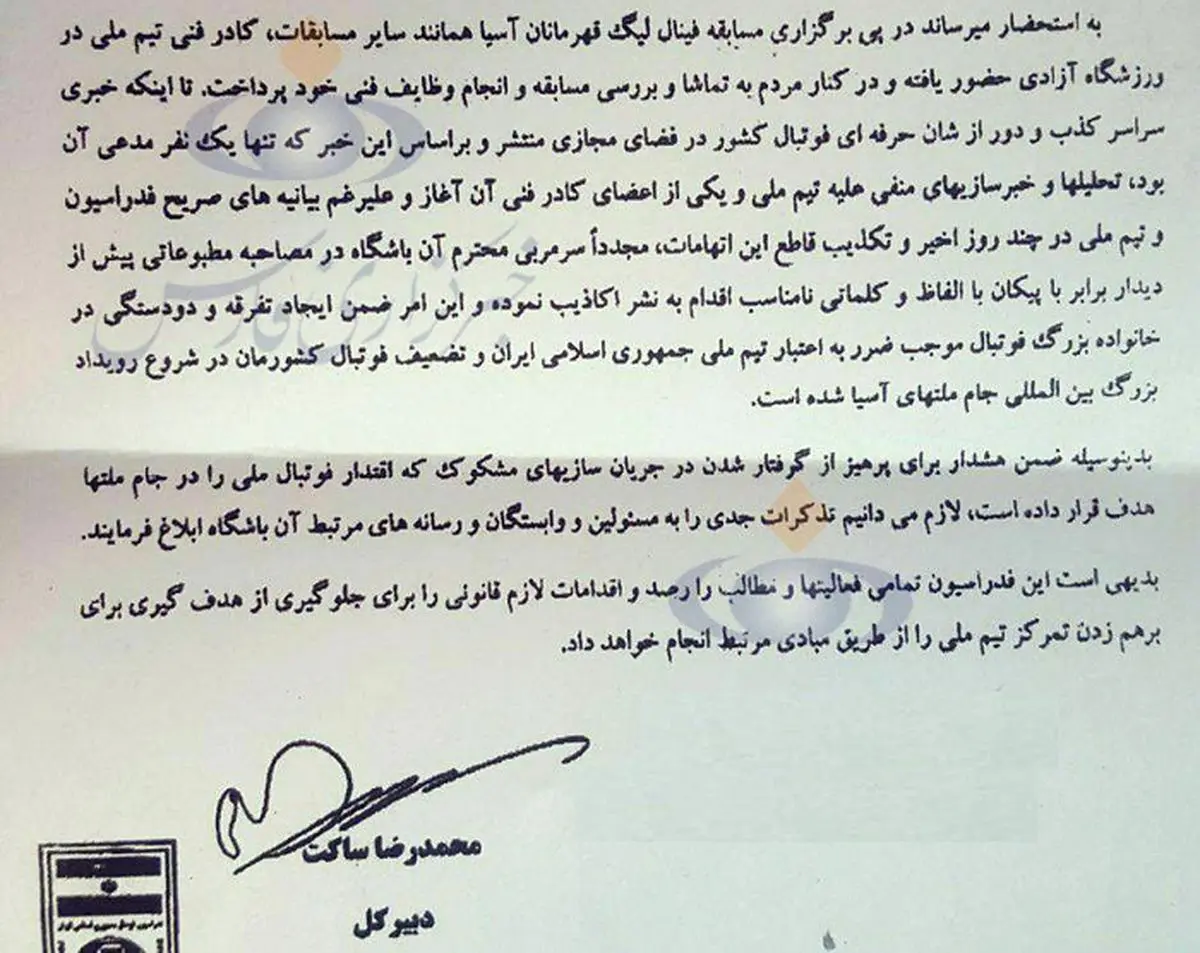 به استحضار میرساند در پی برگزاری مسابقه فینال لیگ قهرمانان آسیا همانند سایر مسابقات، کادر فنی تیم ملی در
ورزشگاه آزادی حضور یافته و در کنار مردم به تماشا و بررسی مسابقه و انجام وظایف فنی خود پرداخت. تا اینکه خبری
سراسر کذب و دور از شان حرفه ای فوتبال کشور در فضای مجازی منتشر و براساس این خبر که تنها یک نفر مدعی آن
بود، تحلیلها و خبرسازیهای منفی علیه تیم ملی و یکی از اعضای کادر فنی آن آغاز و علیرغم بیانیه های صریح فدراسیون
و تیم ملی در چند روز اخیر و تکذیب قاطع این اتهامات، مجدداً سرمربی محترم آن باشگاه در مصاحبه مطبوعاتی پیش از
دیدار برابر با پیکان با الفاظ و کلماتی نامناسب اقدام به نشر اکاذیب نموده و این امر ضمن ایجاد تفرقه و دودستگی در
خانواده بزرگ فوتبال موجب ضرر به اعتبار تیم ملی جمهوری اسلامی ایران و تضعیف فوتبال کشورمان در شروع رویداد
بزرگ بین المللی جام ملتهای آسیا شده است.
بدینوسیله ضمن هشدار برای پرهیز از گرفتار شدن در جریان سازیهای مشکوک که اقتدار فوتبال ملی را در جام ملتها
هدف قرار داده است، لازم می دانیم تذکرات جدی را به مسئولین و وابستگان و رسانه های مرتبط آن باشگاه ابلاغ فرمایند.
بدیهی است این فدراسیون تمامی فعالیتها و مطالب را رصد و اقدامات لازم قانونی را برای جلوگیری از هدف گیری برای
برهم زدن تمرکز تیم ملی را از طریق مبادی مرتبط انجام خواهد داد.
محمدرضا ساکت
دبیر کل
خبرگزاری فارس